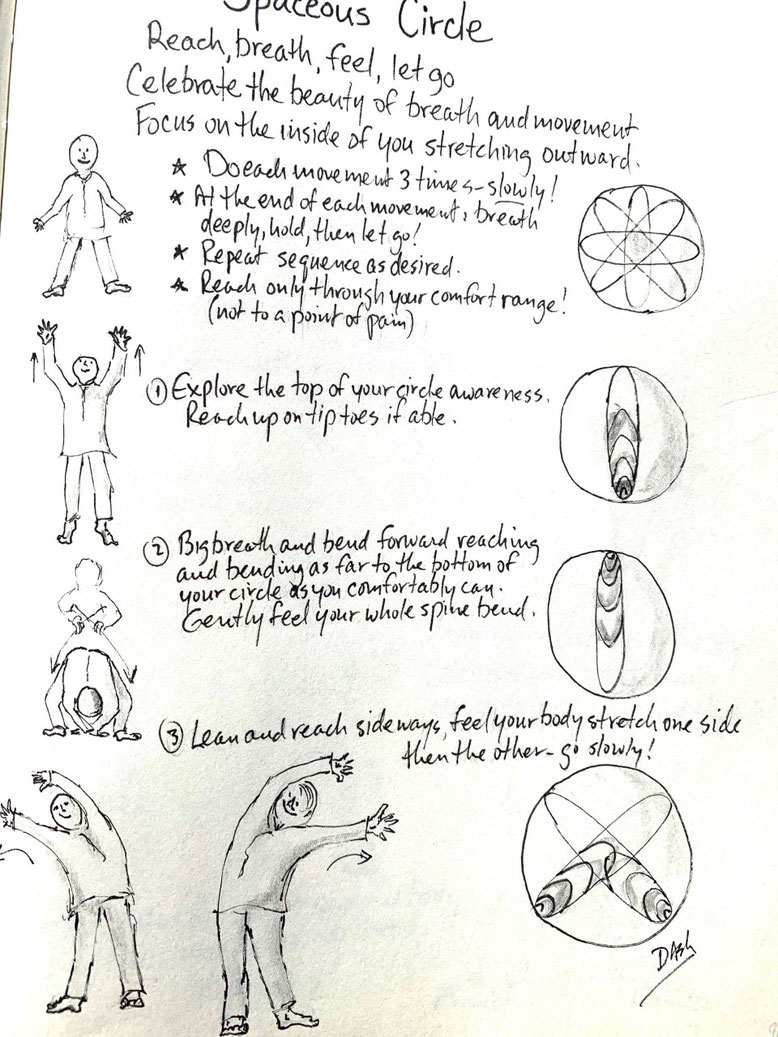 Spaceous Circle
Reach, breath, feel, let go
Celebrate the beauty of breath and movement
Focus on the inside of you stretching outward.
* Do each movement 3 times - slowly!
* At the end of each movement, breath
deeply, hold, then let go!
* Repeat sequence as desired.
* Reach only through your comfort range!
(not to a point of pain)
① Explore the top of your circle awareness.
Reach up on tip toes if able.
② Big breath and bend forward reaching
and bending as far to the bottom of
your circle as you comfortably can.
Gently feel your whole spine bend.
③ Lean and reach sideways, feel your body stretch one side
then the other - go slowly!
DASh